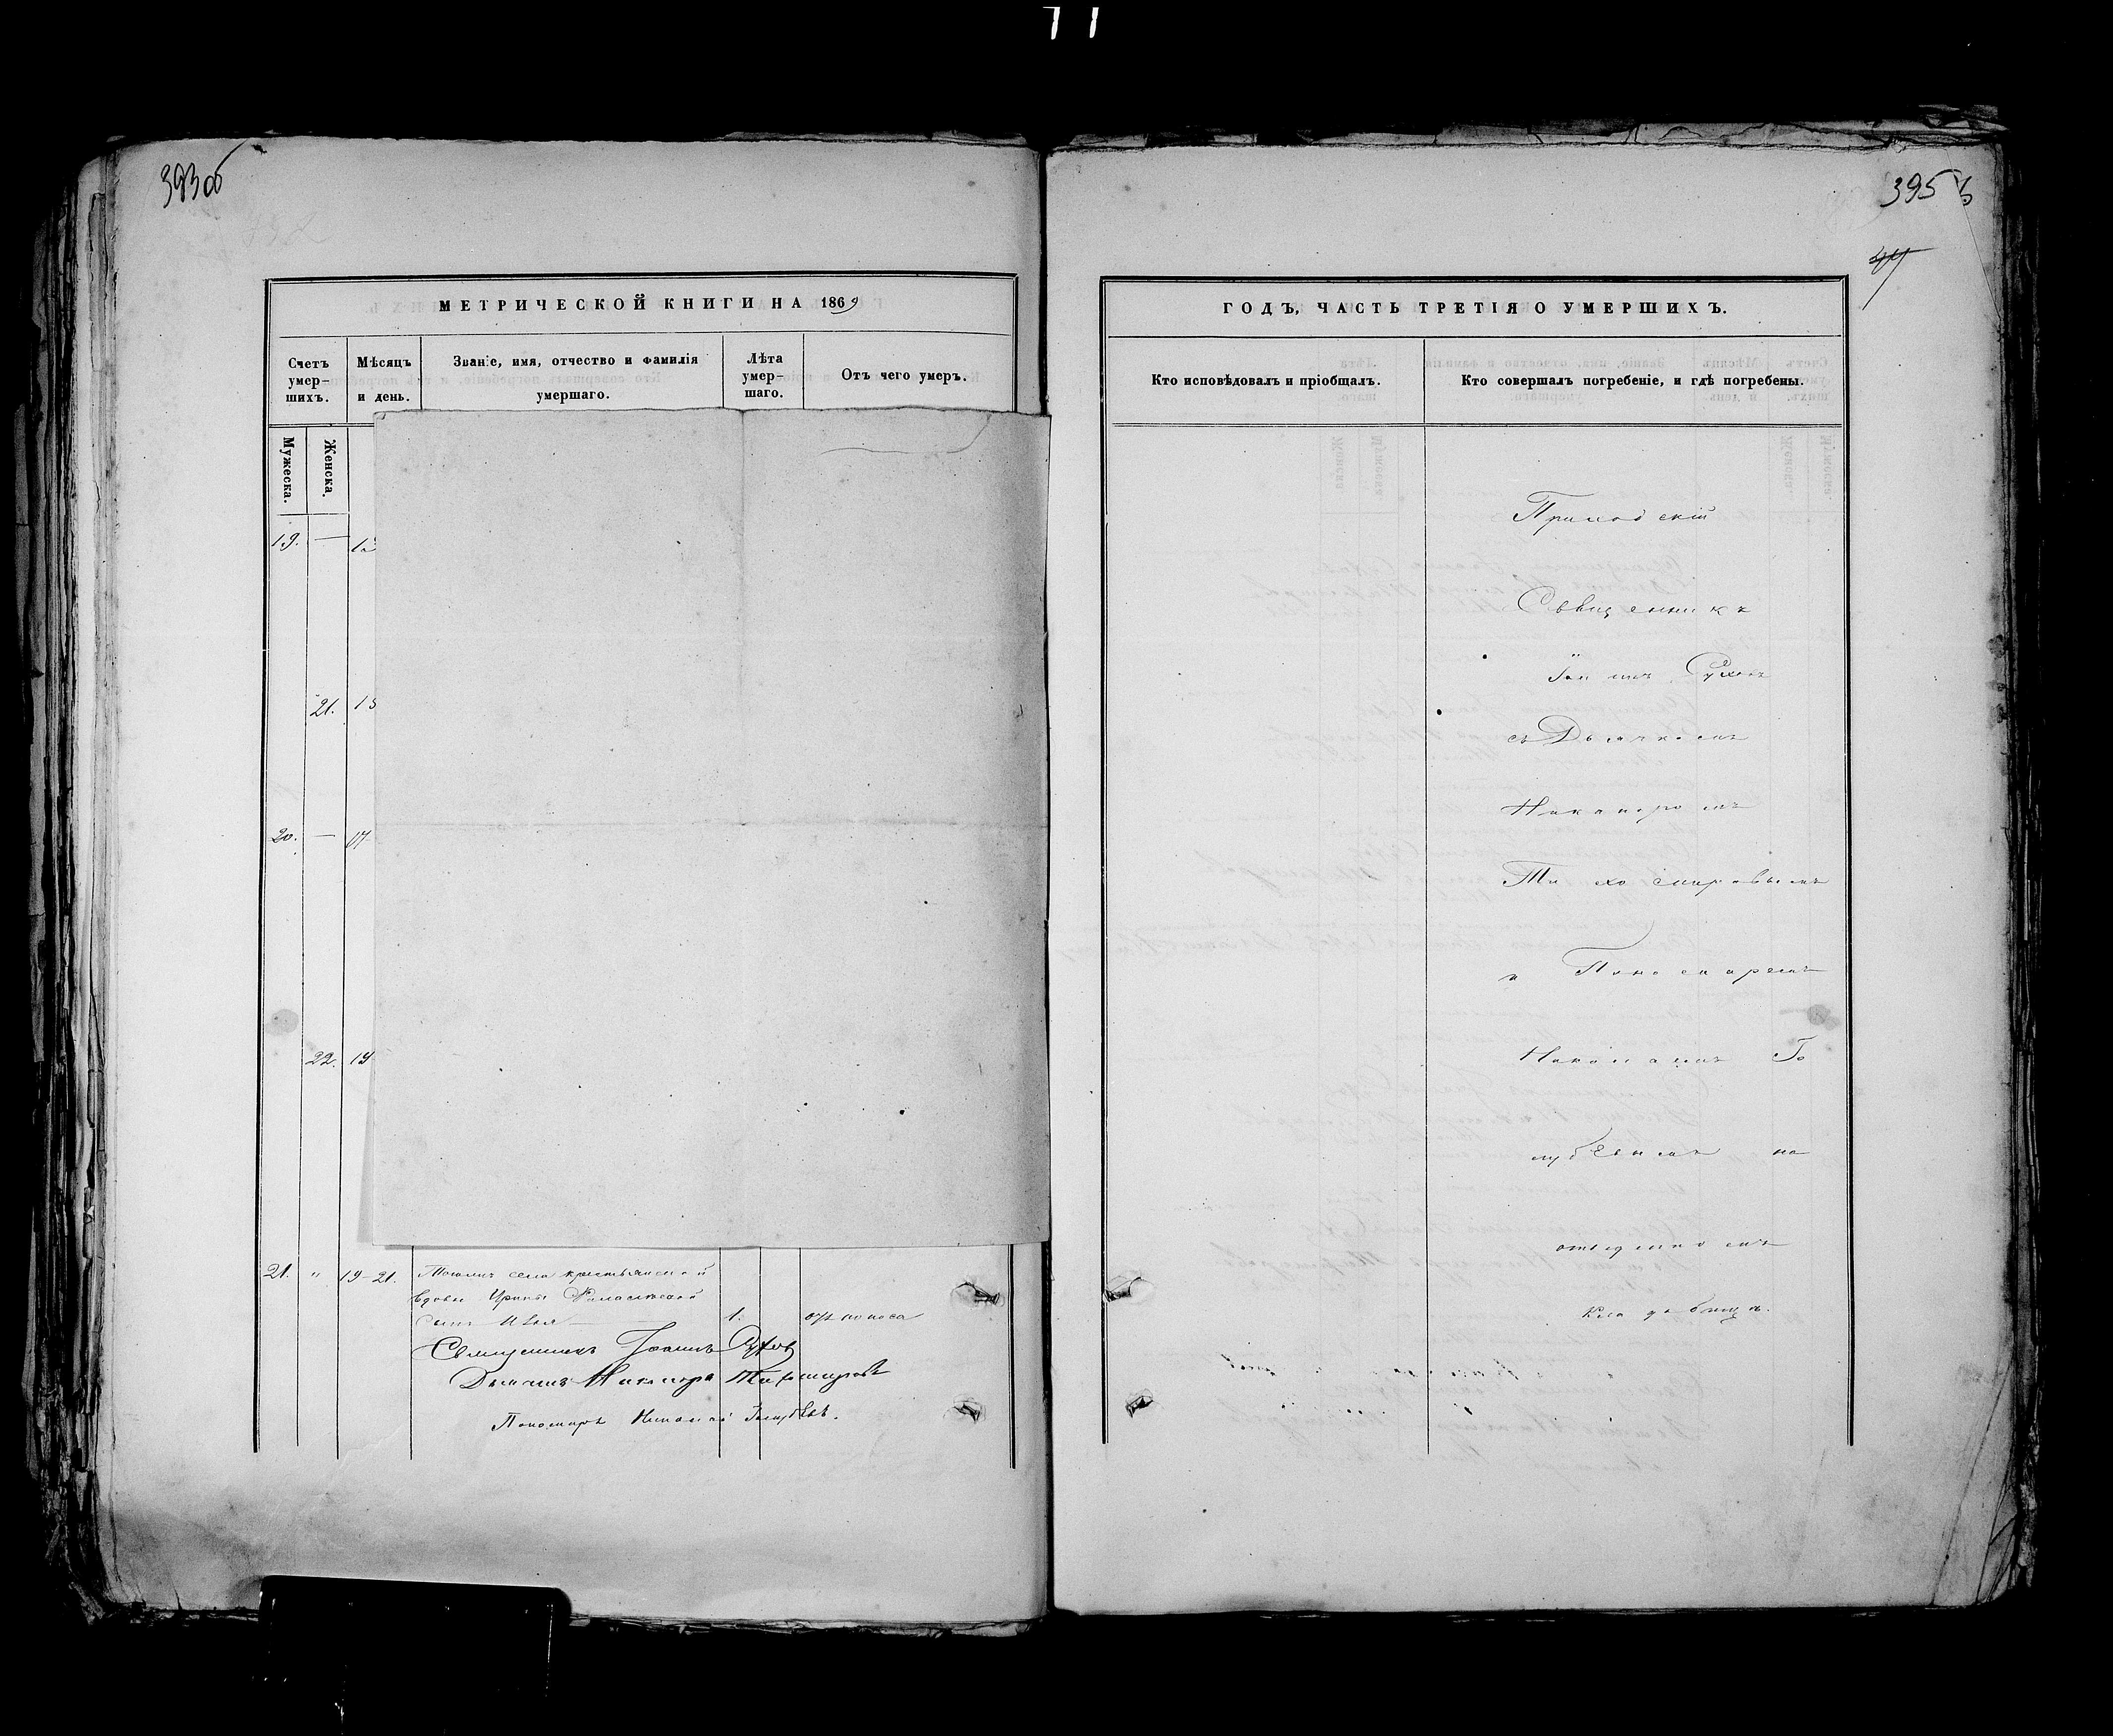 393об
МЕТРИЧЕСКОЙ КНИГИ НА 1869
Счетъ умер-шихъ.
Мѣсяцъ и день.
Званіе, имя, отчество и фамилія умершаго.
Лѣта умер-шаго.
Отъ чего умеръ.
Мужеска.
Женска.
19. —
21.
20. — 17
22. 19
21. " 19-21. Тогоже села крестьянской
вдовы Ирины
сынъ 1. отъ поноса
Священникъ Іоаннъ
Дьячекъ Никаноръ Тихомировъ
Пономарь Николай Голубевъ.
395
ГОДЪ, ЧАСТЬ ТРЕТІЯ О УМЕРШИХЪ.
Кто исповѣдовалъ и пріобщалъ.
Кто совершалъ погребеніе, и гдѣ погребены.
Приходскій
Священникъ
Іоаннъ
съ Дьячкомъ
Никаноромъ
Тихомировымъ
и Пономаремъ
Николаемъ Го
лубевымъ на
отведенномъ
кладбищѣ.